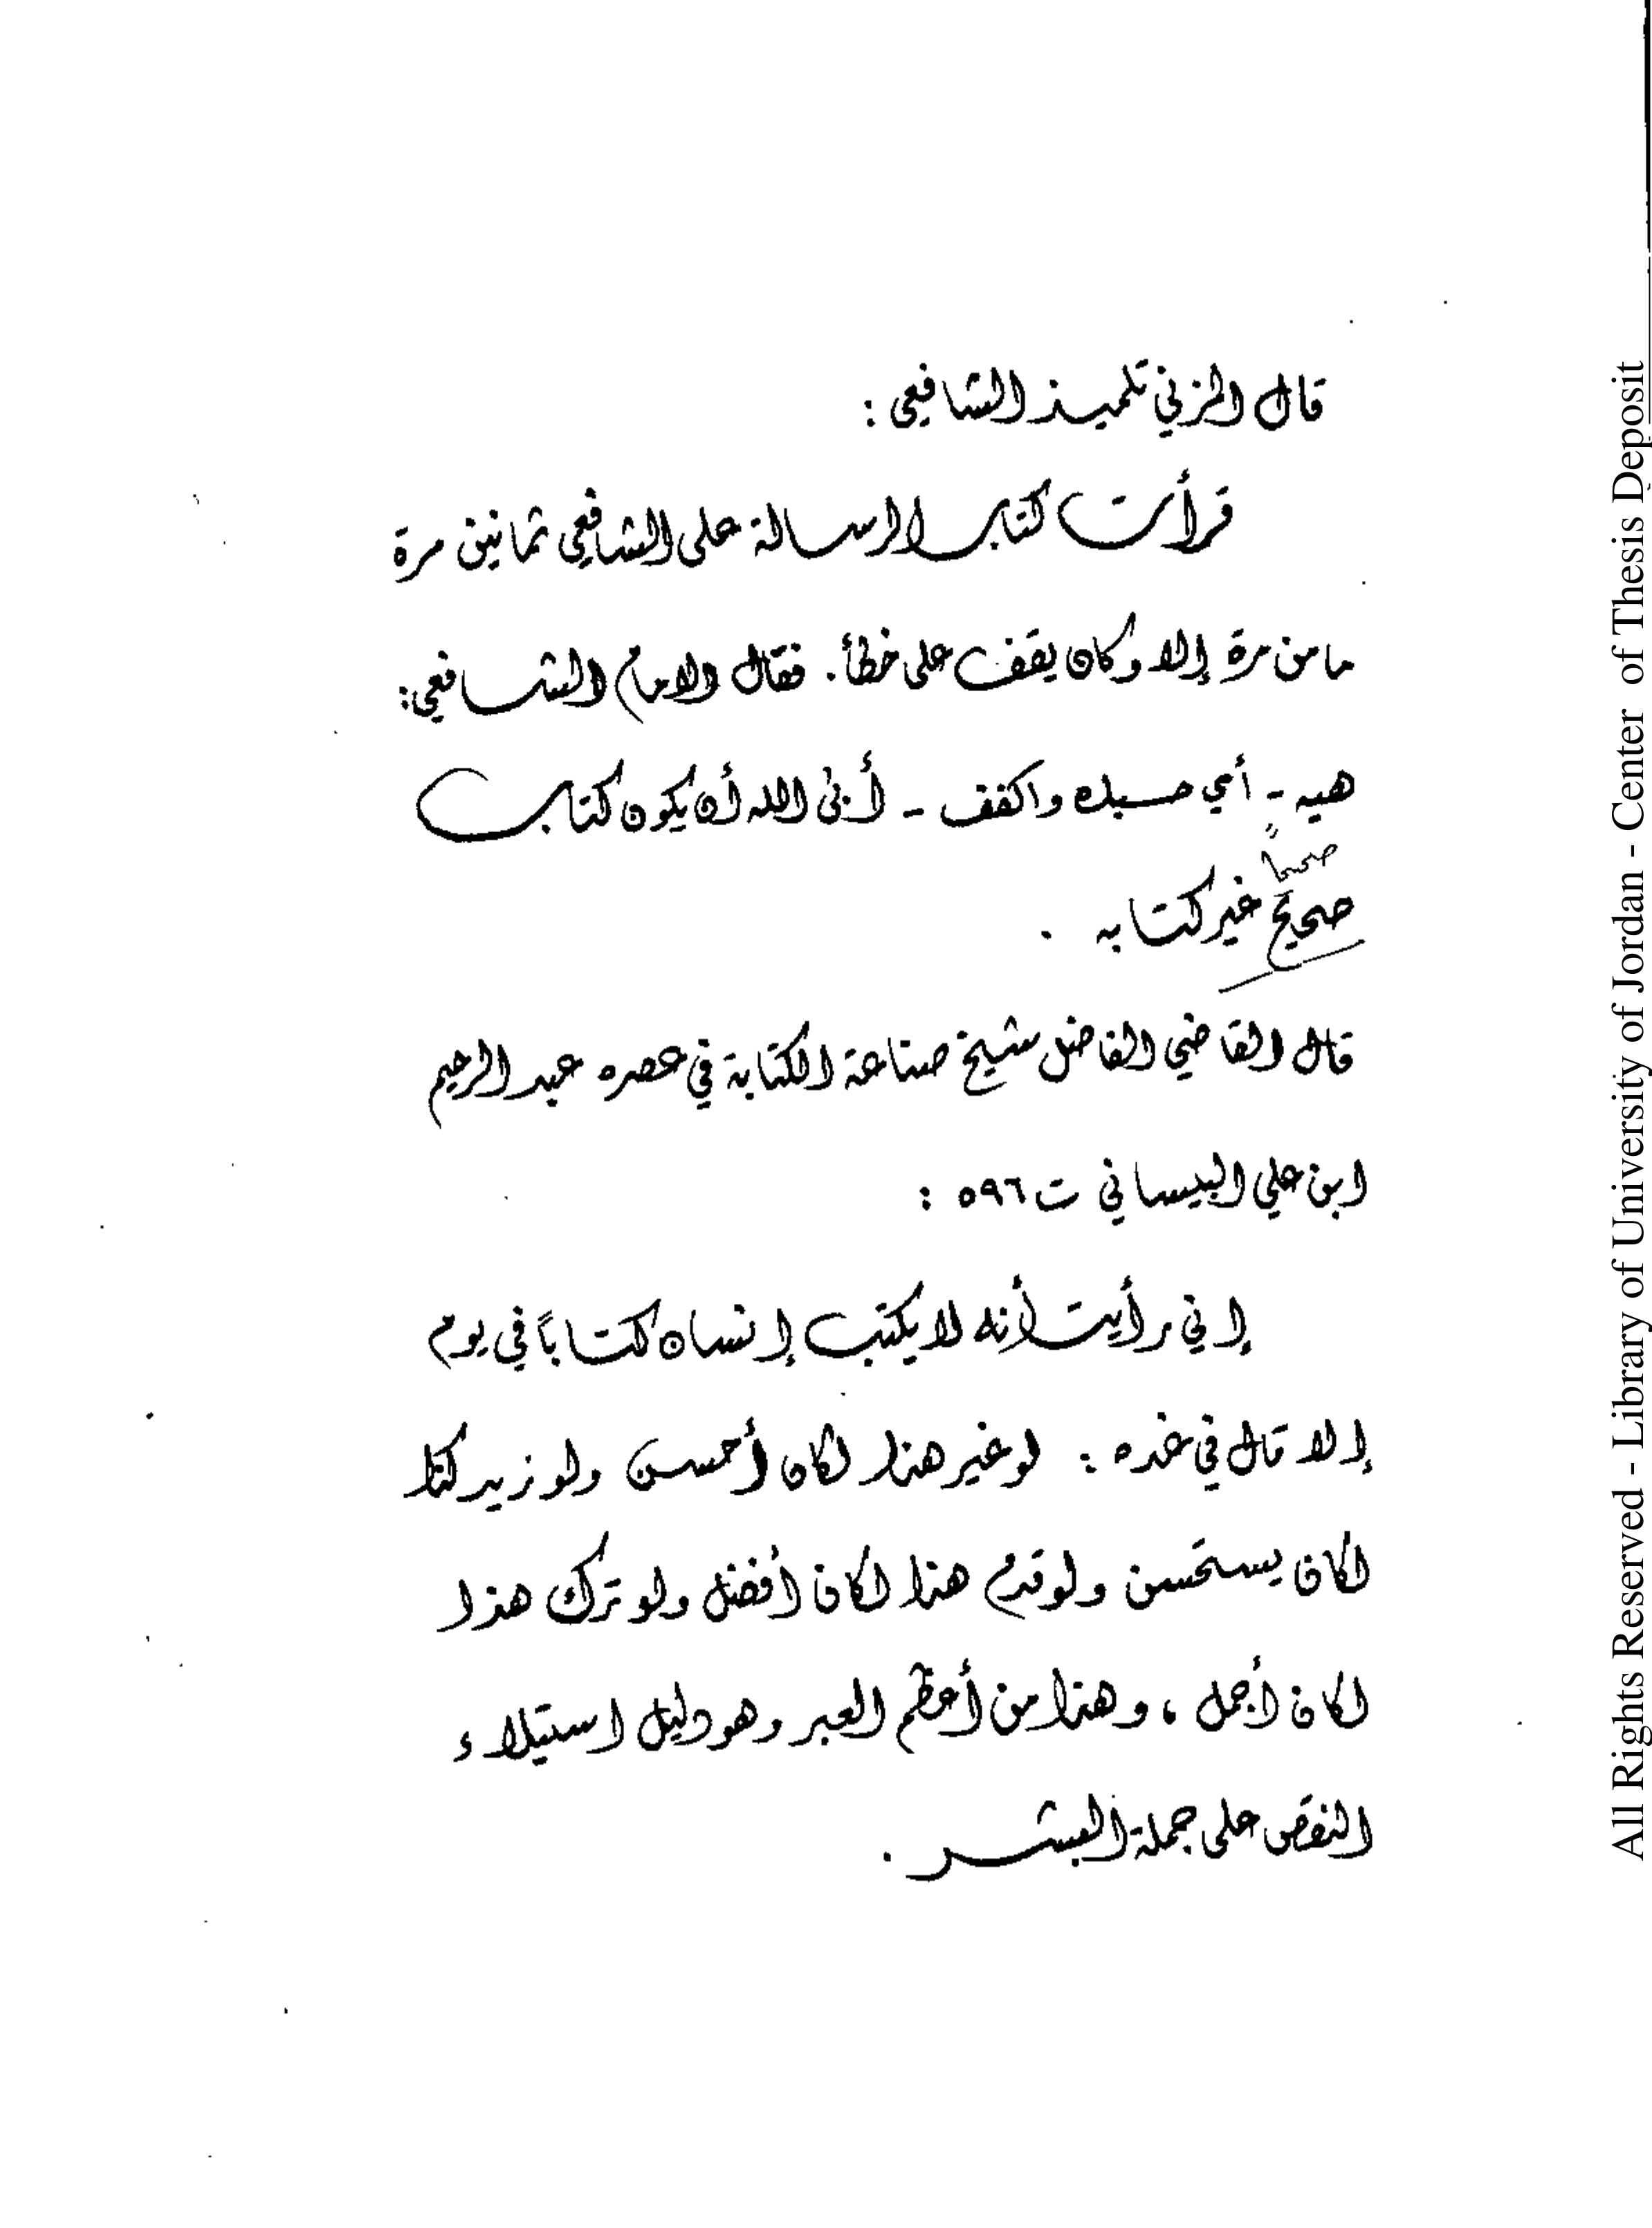 قال المزني تلميذ الشافعي :
قرأت كتاب الرسالة على الشافعي ثمانين مرة
ما من مرة إلا وكان يقف على خطأ . فقال الامام الشافعي :
هيه - أي حسبك واكفف - أبى الله أن يكون كتاب
صحيحاً
صحيح غير كتابه .
قال القاضي الفاضل شيخ صناعة الكتابة في عصره عبد الرحيم
ابن علي البيساني ت ٥٩٦ :
إني رأيت أنه لا يكتب إنسان كتاباً في يوم
إلا قال في غده : لو غير هذا لكان أحسن ولو زيد كذا
لكان يستحسن ولو قدم هذا لكان أفضل ولو ترك هذا
لكان أجمل ، وهذا من أعظم العبر وهو دليل استيلاء
النقص على جملة البشر .
All Rights Reserved - Library of University of Jordan - Center of Thesis Deposit